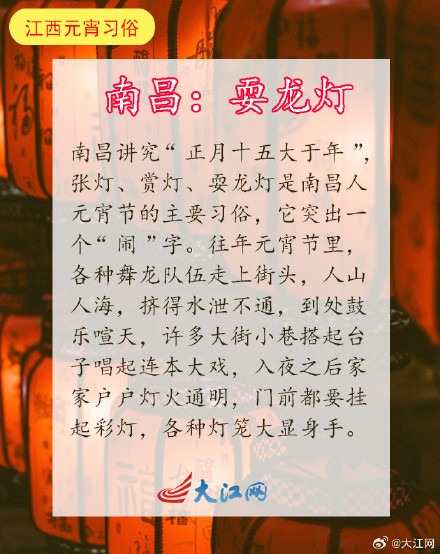 江西元宵习俗
南昌：耍龙灯
南昌讲究“正月十五大于年”，
张灯、赏灯、耍龙灯是南昌人
元宵节的主要习俗，它突出一
个“闹”字。往年元宵节里，
各种舞龙队伍走上街头，人山
人海，挤得水泄不通，到处鼓
乐喧天，许多大街小巷搭起台
子唱起连本大戏，入夜之后家
家户户灯火通明，门前都要挂
起彩灯，各种灯笼大显身手。
大江网
@大江网